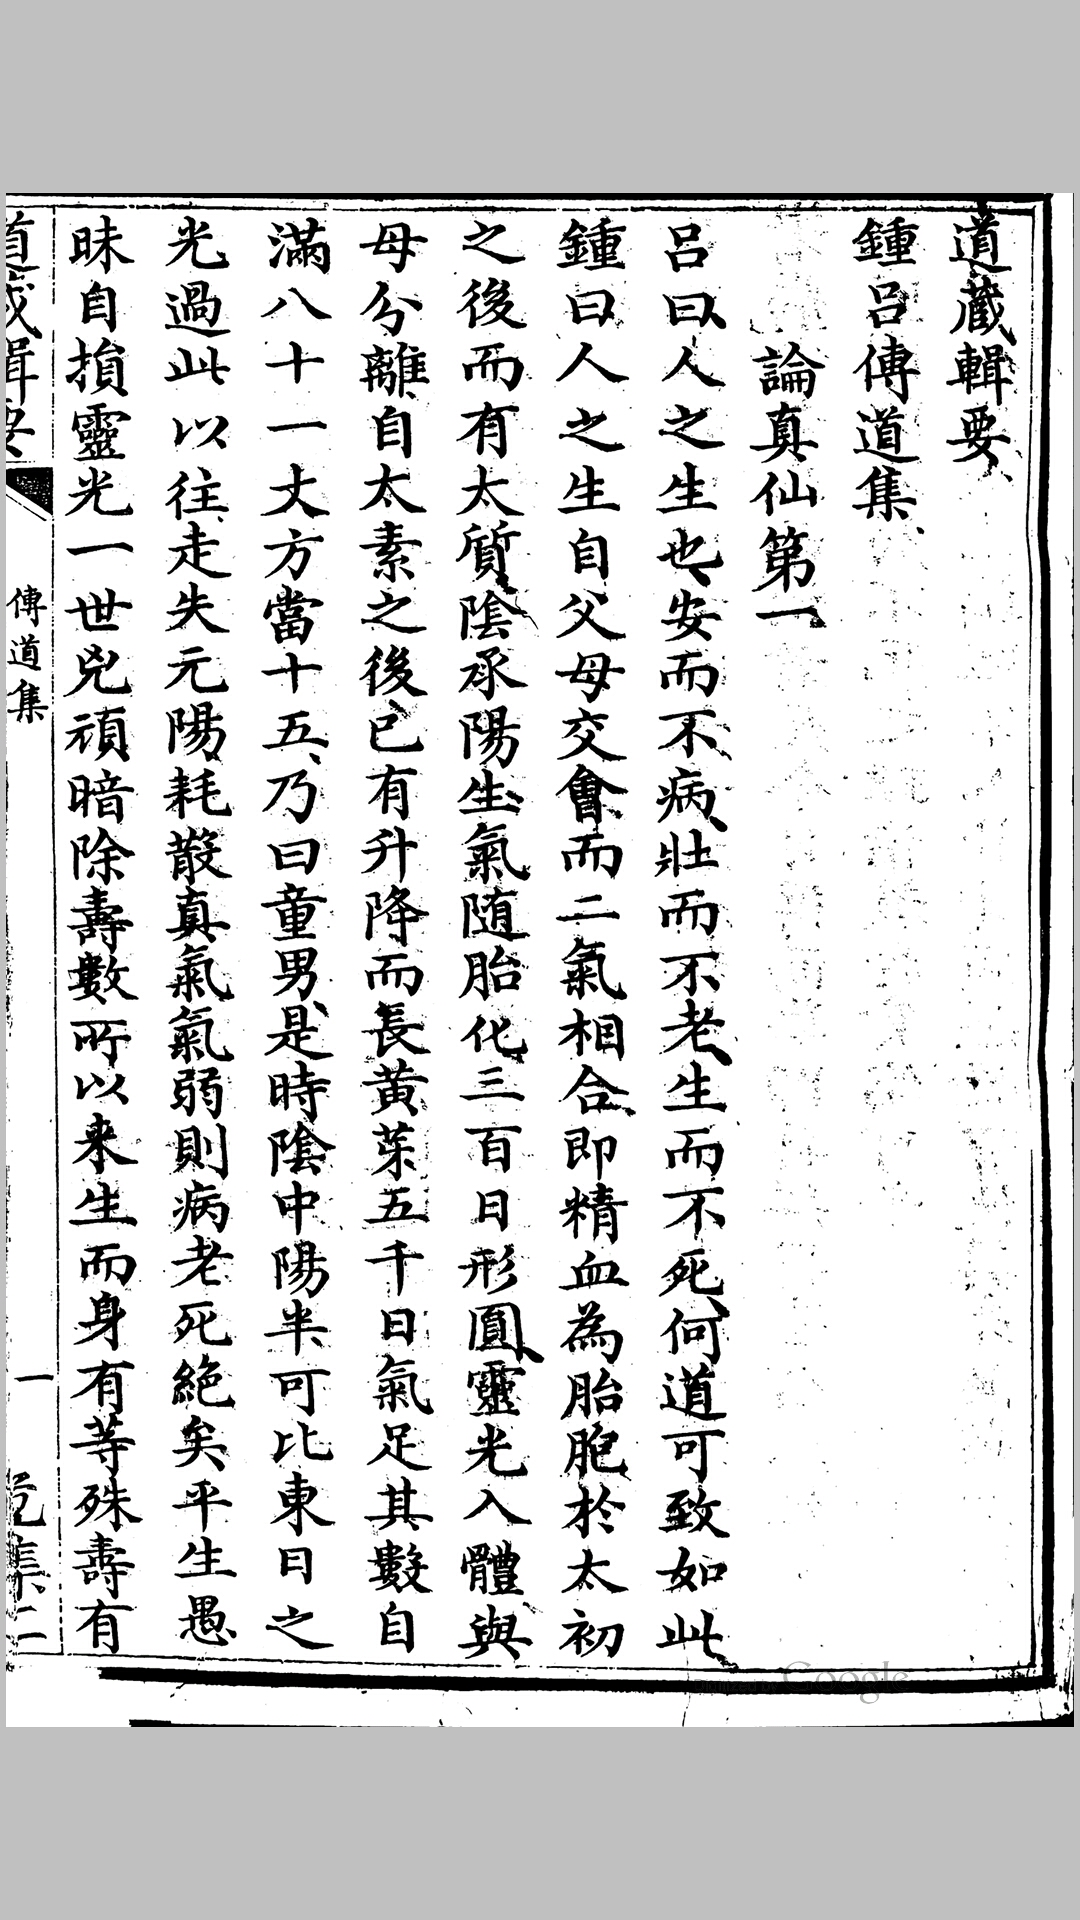 道藏輯要
鍾呂傳道集
論真仙第一
呂曰人之生也安而不病壯而不老生而不死何道可致如此
鍾曰人之生自父母交會而二氣相合即精血為胎胞於太初
之後而有太質陰承陽生氣随胎化三百日形圓靈光入體與
母分離自太素之後已有升降而長黃芽五千日氣足其數自
滿八十一丈方當十五乃曰童男是時陰中陽半可比東日之
光過此以往走失元陽耗散真氣氣弱則病老死絕矣平生愚
昧自損靈光一世兇頑暗除壽數所以来生而身有等殊壽有
傳道集
一
集二
Google